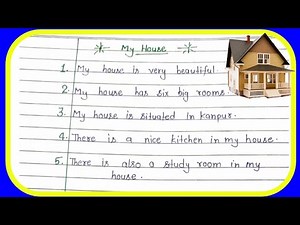 My House
1. My house is very beautiful
2. My house has six big rooms.
3. My house is situated in kanpur.
4. There is a nice kitchen in my house.
5. There is also a study room in my
house.